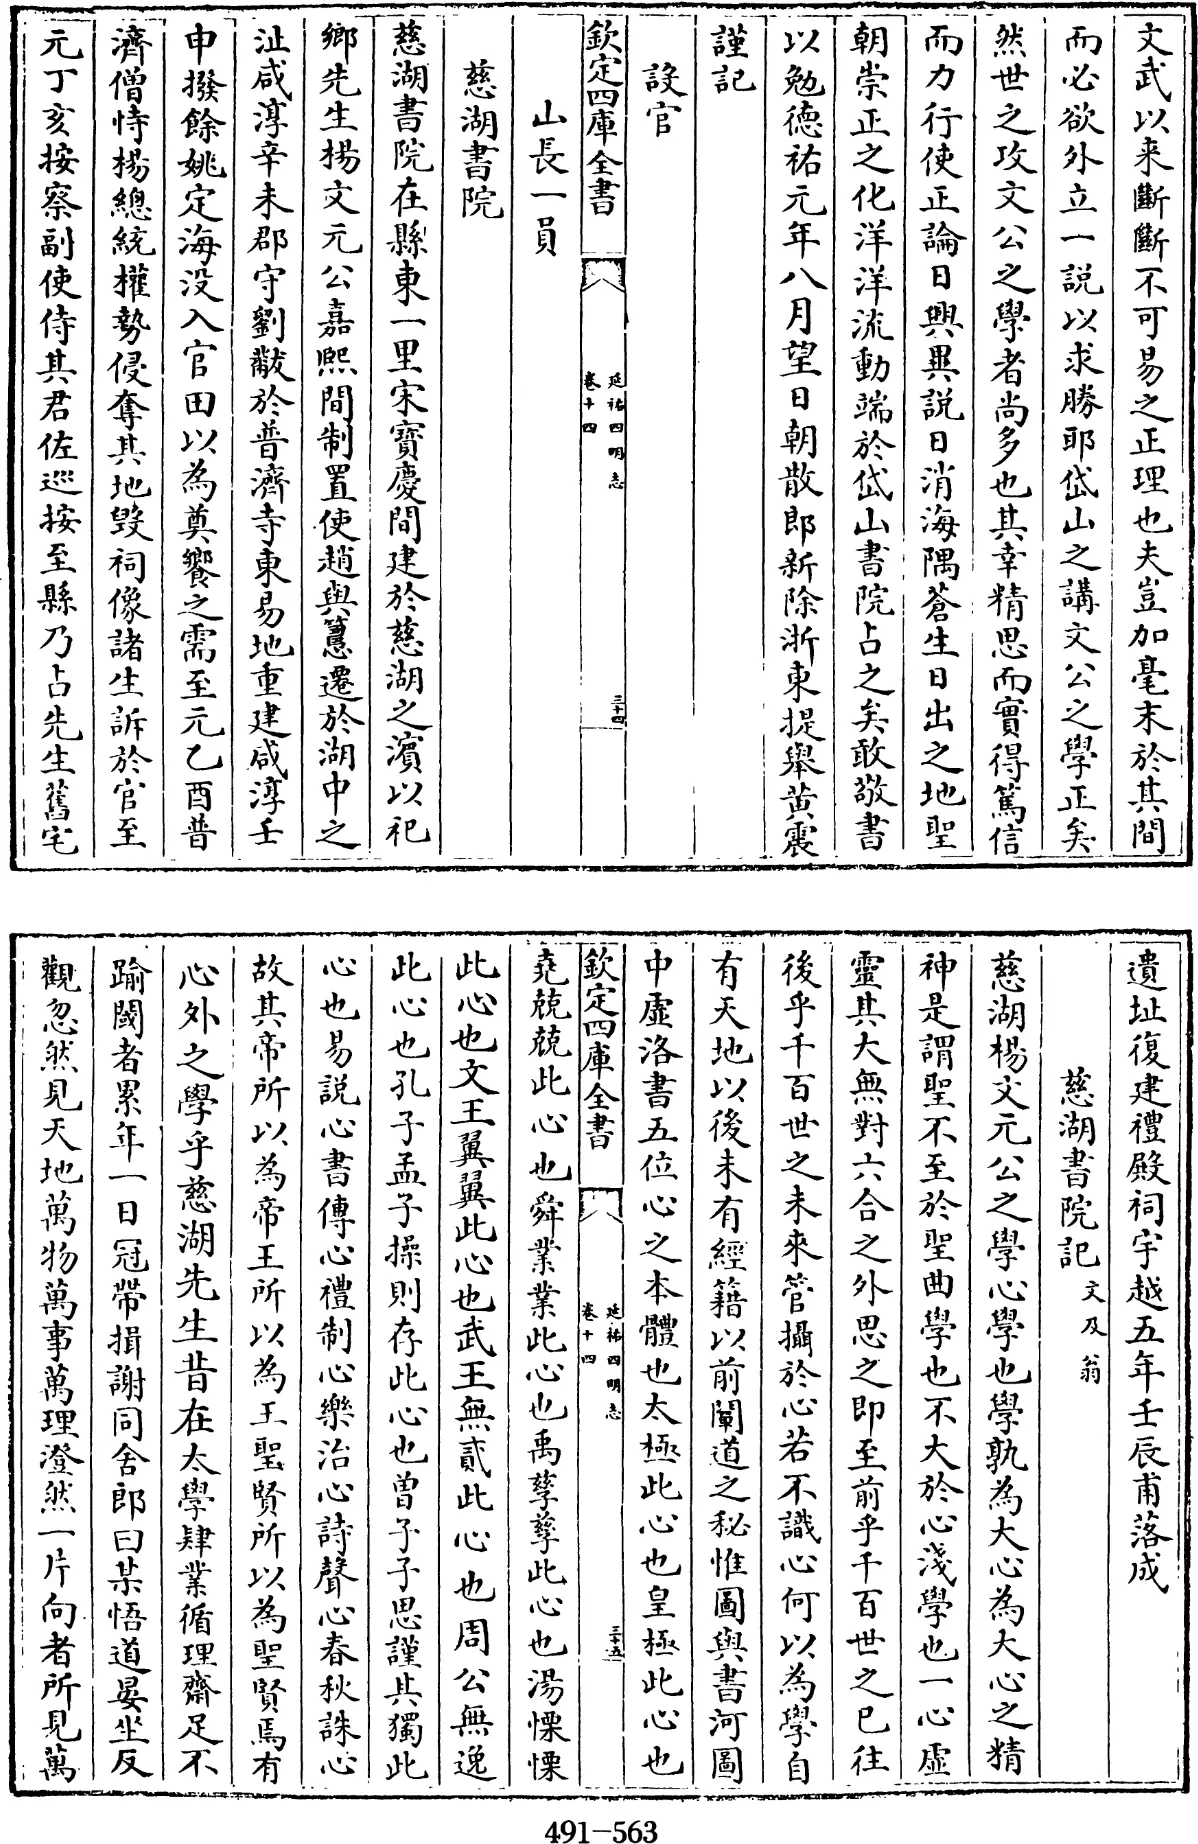 文武以来斷斷不可易之正理也夫豈加毫末於其間
而必欲外立一説以求勝耶岱山之講文公之學正矣
然世之攻文公之學者尚多也其幸精思而實得篤信
而力行使正論日興異説日消海隅蒼生日出之地聖
朝崇正之化洋洋流動端於岱山書院占之矣敢敬書
以勉德祐元年八月望日朝散郎新除浙東提舉黄震
謹記
設官
欽定四庫全書
延祐四明志
卷十四
三十四
山長一員
慈湖書院
慈湖書院在縣東一里宋寶慶間建於慈湖之濱以祀
鄉先生楊文元公嘉熙間制置使趙與𥲅遷於湖中之
沚咸淳辛未郡守劉黻於普濟寺東易地重建咸淳壬
申撥餘姚定海没入官田以為奠饗之需至元乙酉普
濟僧恃楊總統權勢侵奪其地毀祠像諸生訴於官至
元丁亥按察副使侍其君佐巡按至縣乃占先生舊宅
遺址復建禮殿祠宇越五年壬辰甫落成
慈湖書院記 文及翁
慈湖楊文元公之學心學也學孰為大心為大心之精
神是謂聖不至於聖曲學也不大於心淺學也一心虚
靈其大無對六合之外思之即至前乎千百世之已往
後乎千百世之未來管攝於心若不識心何以為學自
有天地以後未有經籍以前闡道之秘惟圖與書河圖
中虚洛書五位心之本體也太極此心也皇極此心也
欽定四庫全書
延祐四明志
卷十四
三十五
堯兢兢此心也舜業業此心也禹孳孳此心也湯慄慄
此心也文王翼翼此心也武王無貳此心也周公無逸
此心也孔子孟子操則存此心也曾子子思謹其獨此
心也易説心書傳心禮制心樂治心詩聲心春秋誅心
故其帝所以為帝王所以為王聖賢所以為聖賢焉有
心外之學乎慈湖先生昔在太學肄業循理齋足不
踰閾者累年一日冠帶揖謝同舍郎曰某悟道晏坐反
觀忽然見天地萬物萬事萬理澄然一片向者所見萬
491-563